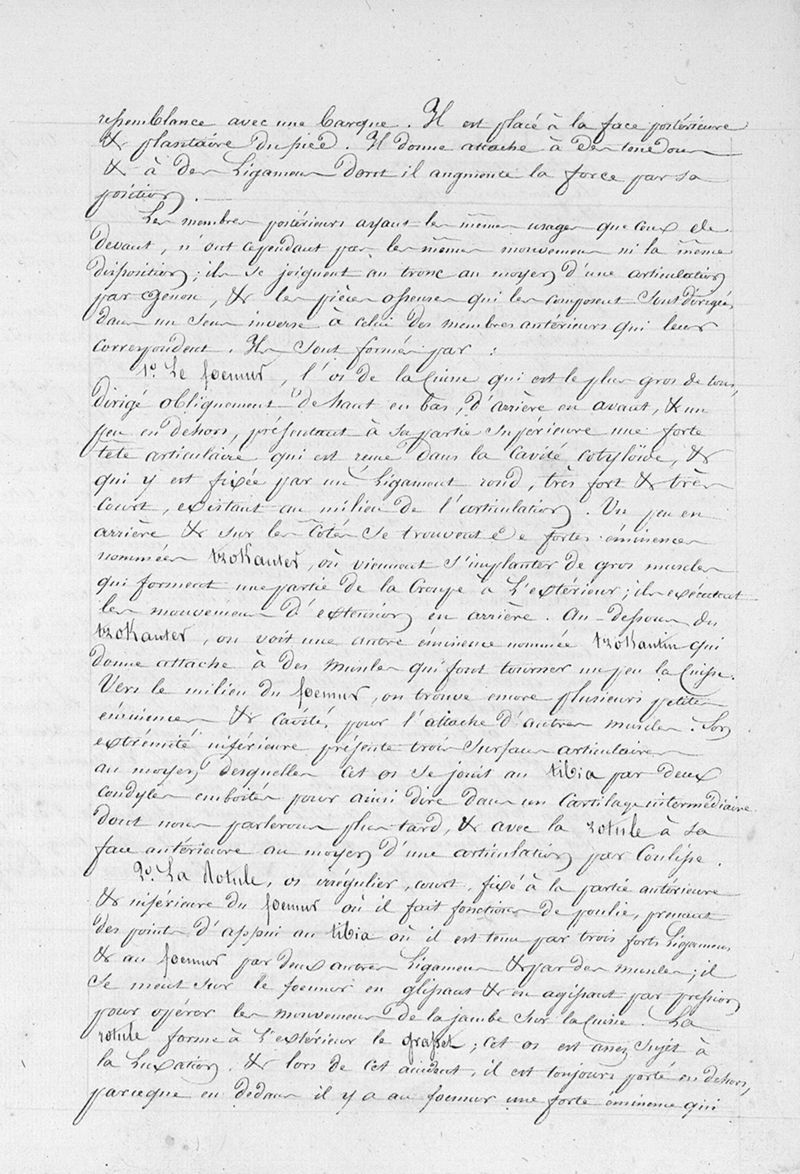 ressemblance avec une barque. Il est placé à la face postérieure
& plantaire du pied. Il donne attache à des tendons
& à des Ligamens dont il augmente la force par sa
position.
Les membres postérieurs ayant les mêmes usages que ceux de
devant, n'ont cependant pas les mêmes mouvemens ni la même
disposition; ils se joignent au tronc au moyen d'une articulation
par genou, & les pièces osseuses qui les composent sont dirigées
dans un sens inverse à celui des membres antérieurs qui leur
correspondent. Ils sont formés par :
1º. Le foemur, l'os de la Cuisse qui est le plus gros de tous,
dirigé obliquement de haut en bas, d'arrière en avant, & un
peu en dehors, présentant à sa partie supérieure une forte
tête articulaire qui est reçue dans la Cavité cotyloïde, &
qui y est fixée par un Ligament rond, très fort & très
court, existant au milieu de l'articulation. Un peu en
arrière & sur les côtés se trouvent de fortes éminences
nommées trokanter, où viennent s'implanter de gros muscles
qui forment une partie de la Croupe à l'extérieur; ils exécutent
les mouvemens d'extension en arrière. Au-dessous du
trokanter, on voit une autre éminence nommée trokantin qui
donne attache à des muscles qui font tourner un peu la Cuisse.
Vers le milieu du foemur, on trouve encore plusieurs petites
éminences & cavités, pour l'attache d'autres muscles. Son
extrémité inférieure présente trois surfaces articulaires
au moyen desquelles cet os se joint au tibia par deux
condyles emboités pour ainsi dire dans un cartilage intermédiaire
dont nous parlerons plus tard, & avec la rotule à sa
face antérieure au moyen d'une articulation par Coulisse.
2º. La Rotule, os irrégulier, court, fixé à la partie antérieure
& inférieure du foemur où il fait fonctions de poulie, prenant
des points d'appui au tibia où il est tenu par trois forts Ligamens
& au foemur par deux autres Ligamens & par des muscles; il
se meut sur le foemur en glissant & en agissant par pression
pour opérer les mouvemens de la jambe sur la Cuisse. La
rotule forme à l'extérieur le grasset; cet os est assez sujet à
la Luxation, & lors de cet accident, il est toujours porté en dehors,
parceque en dedans il y a au foemur une forte éminence qui